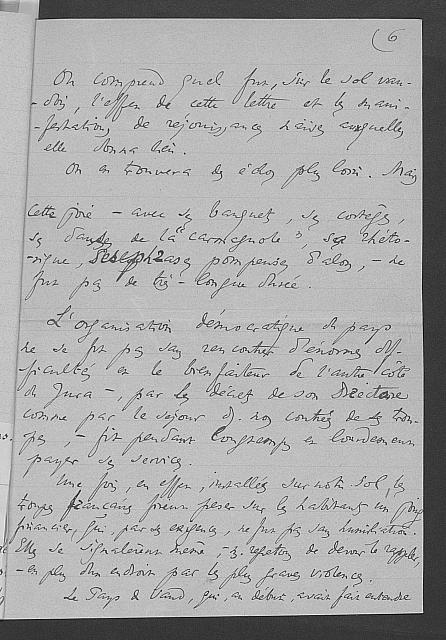 6
On comprend quel fut, sur le sol vau-
-dois, l'effet de cette lettre et les mani-
-festations de réjouissances naïves auxquelles
elle donna lieu.
On en trouvera des échos plus loin. Mais
cette joie – avec ses banquets, ses cortèges,
ses danses de la "carmagnole", sa rhéto-
-rique, ses phrases pompeuses d'alors, – ne
fut pas de très-longue durée.
L'organisation démocratique du pays
ne se fit pas sans rencontrer d'énormes dif-
-ficultés et le bienfaiteur de l'autre côté
du Jura –, par les décrets de son Directoire
comme par le séjour ds. nos contrées de ses trou-
pes, – fit pendant longtemps et lourdement
payer ses services.
Une fois, en effet, installées sur notre sol, les
troupes françaises firent peser sur les habitants un joug
financier, qui, par ses exigences, ne fut pas sans humiliation.
Elles se signalèrent même, – regrettons de devoir le rappeler,
– en plus d'un endroit par les plus graves violences.
Le Pays de Vaud, qui, au début, avait fait entendre